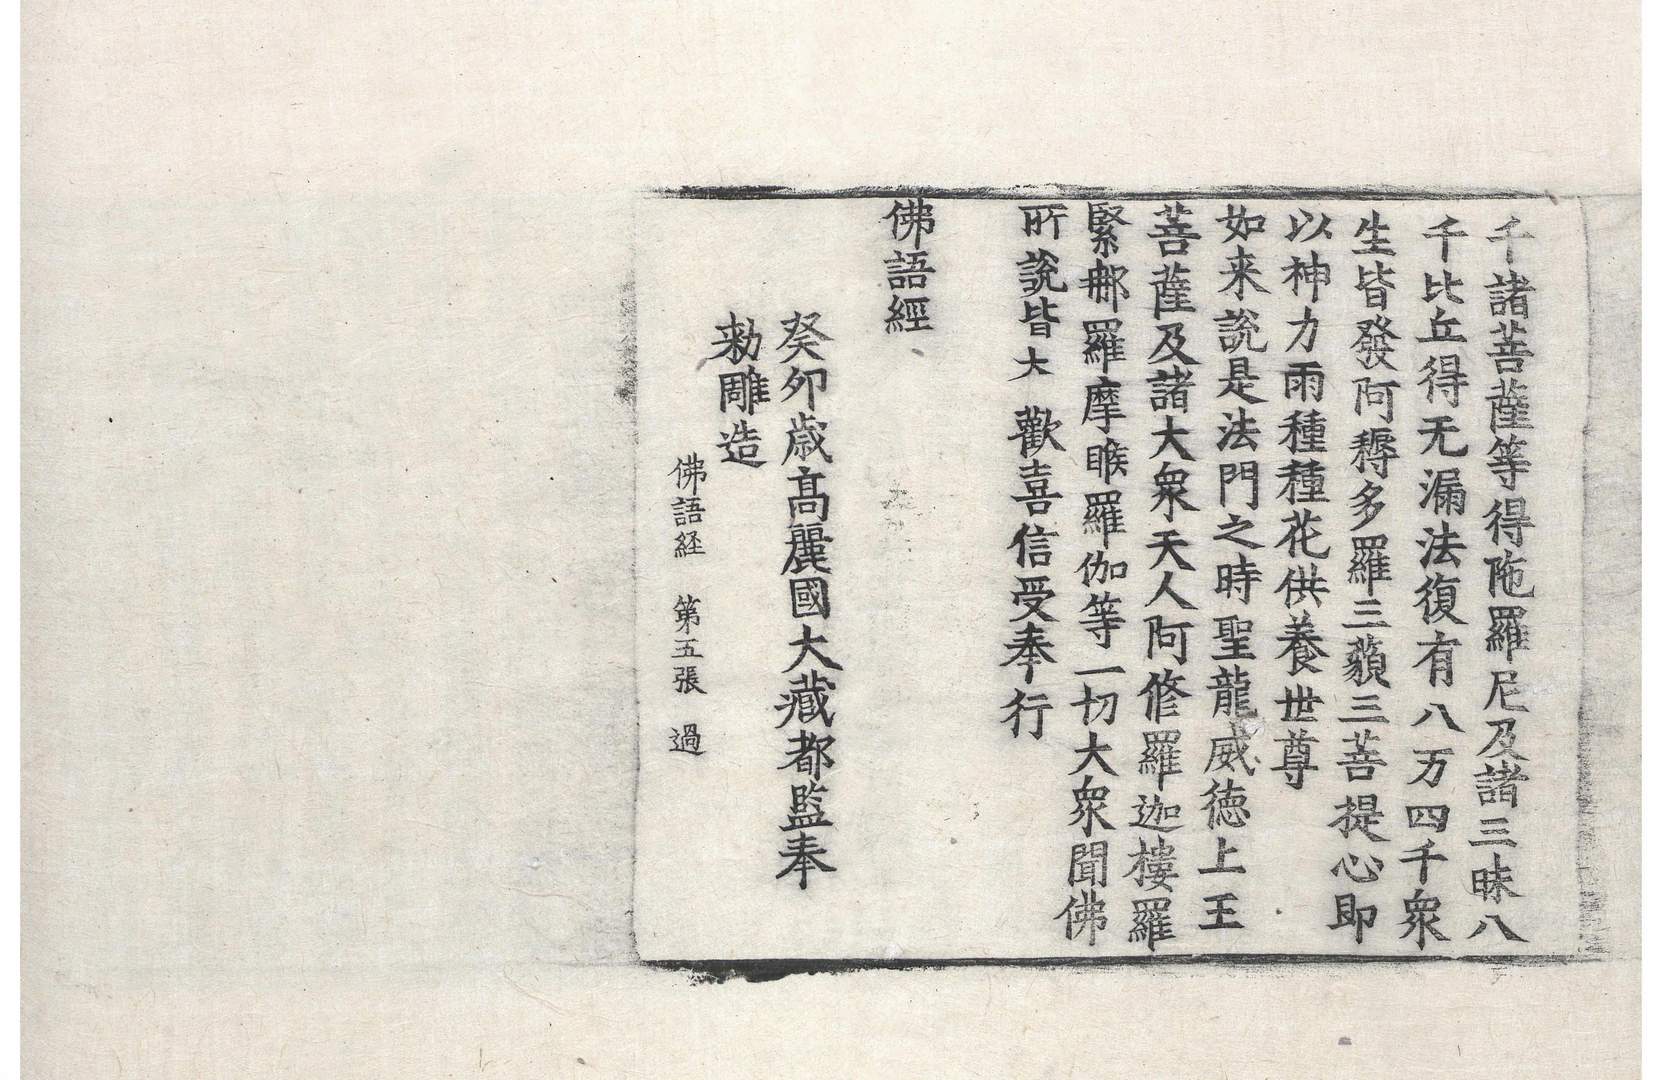 千諸菩薩等得陁羅尼及諸三昧八
千比丘得无漏法復有八万四千衆
生皆發阿耨多羅三藐三菩提心即
以神力雨種種花供養世尊
如来說是法門之時聖龍威德上王
菩薩及諸大衆天人阿修羅迦樓羅
緊那羅摩睺羅伽等一切大衆聞佛
所說皆大歡喜信受奉行
佛語經
癸卯歳高麗國大藏都監奉
勅雕造
佛語経 第五張 過